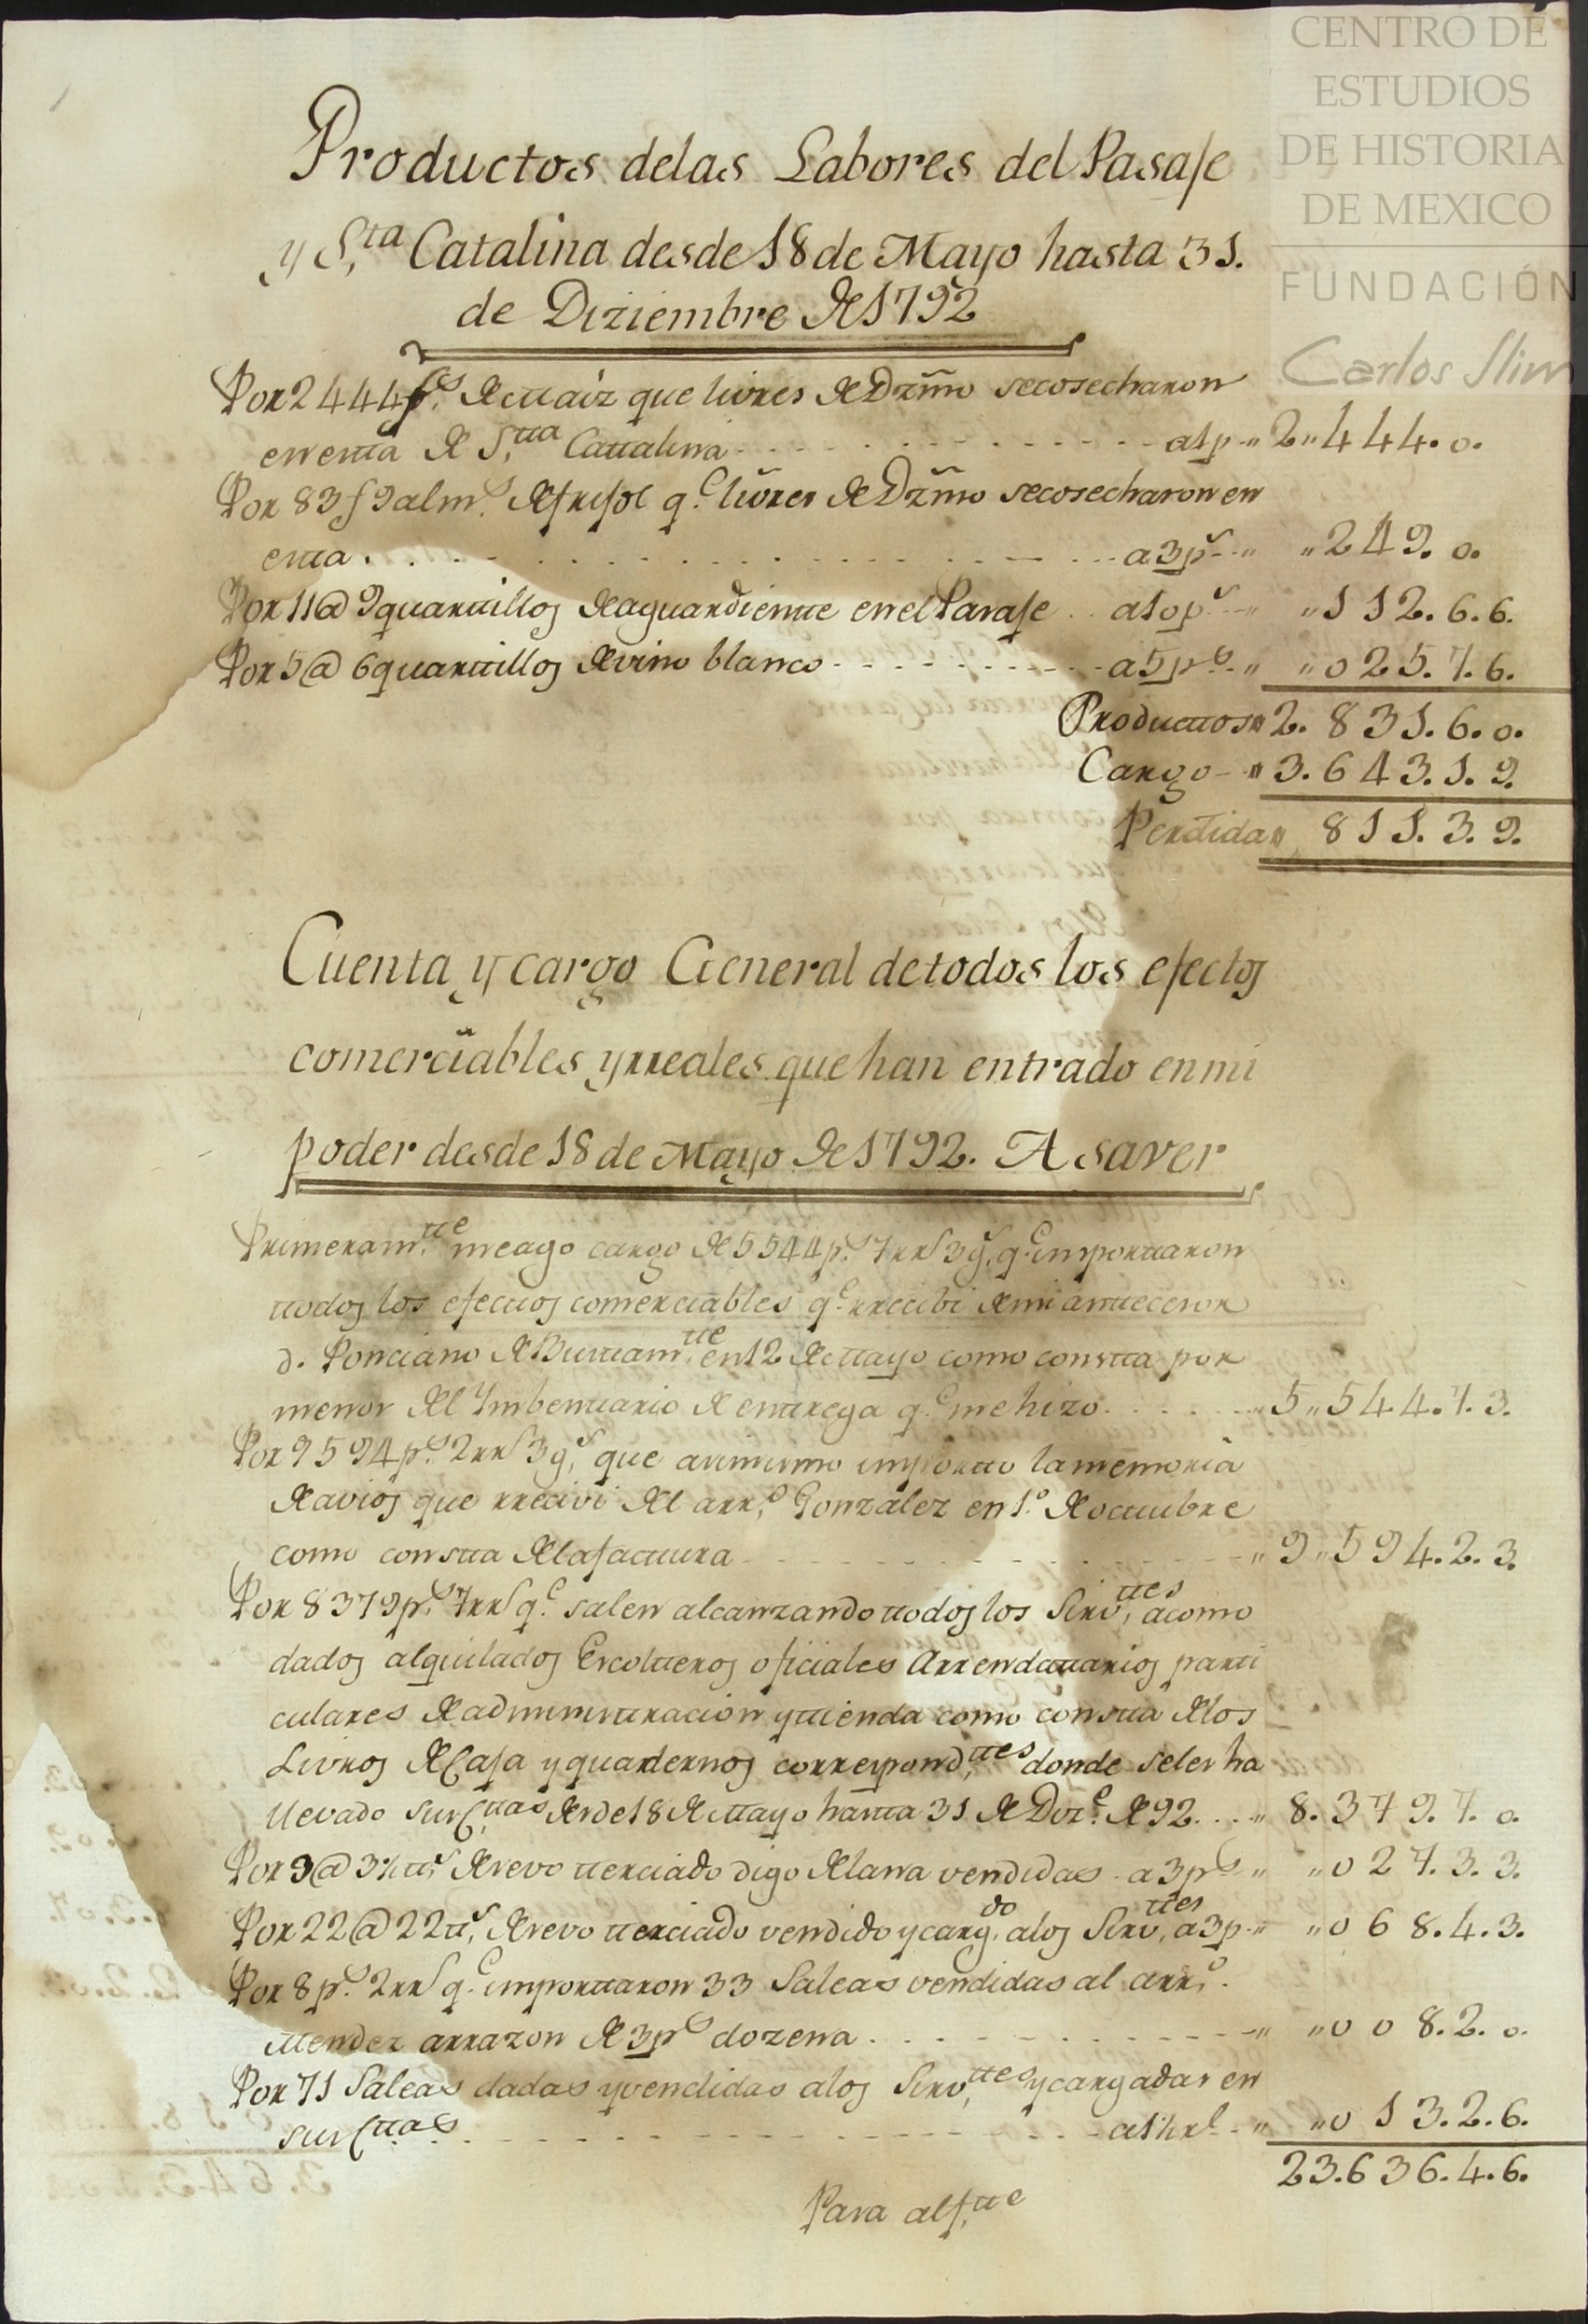 CENTRO DE
ESTUDIOS
DE HISTORIA
DE MEXICO
FUNDACIÓN
Carlos Slim
Productos delas Labores del Pasaje
y S.ta Catalina desde 18 de Mayo hasta 31.
de Diziembre de 1792
Por 2444 f.s de maiz que livres de Dzmo secosecharon
en enta de S.tta Cattalina - - - a1p „ 2„444. o.
Por 83 f 9 alm.s de frisol q.e livres de Dzmo secosecharon en
enta . - - - a3p.s „ „249. o.
Por 11@ 9 quarttillos de aguardientte en el Pasaje a10p.s „ „112. 6. 6.
Por 5@ 6 quarttillos de vino blanco - - - a5p.s „ „o25. 7. 6.
Producttos„ 2. 831. 6. o.
Cargo - „ 3. 643. 1. 9.
Perdida„ 811. 3. 9.
Cuenta y cargo General de todos los efectos
comerciables y rreales que han entrado en mi
poder desde 18 de Mayo de 1792. A saver
Primeram.tte me ago cargo de 5544p.s 7rr.s 3g.s q.e importtaron
ttodos los efecttos comerciables q.e rrecibi de mi anttecesor
d. Ponciano de Busttam.tte en 12 de Mayo como constta por
menor del Ymbenttario de enttrega q.e me hizo . - - „5„544. 7. 3.
Por 9594p.s 2rr.s 3g.s que asimismo importto la memoria
de avios que rrecivi del arr.o Gonzalez en 1.o de octtubre
como constta de la facttura - - - „ 9„594. 2. 3.
Por 8379p.s 7rr.s q.e salen alcanzando ttodos los Sirv.ttes acomo
dados alquilados Escoltteros oficiales Arrendattarios partti
culares de administtracion y ttienda como constta de los
Livros de Caja y quadernos correspond.ttes donde seles ha
llevado sus C.ttas desde 18 de Mayo hastta 31 de Dcz.e de 92. . . „ 8. 379. 7. o.
Por 9@ 3½ tt.s de sevo tterciado digo de lana vendidas - a3p.s „ „o27. 3. 3.
Por 22@ 22 tt.s de sevo tterciado vendido y carg.do alos Sirv.ttes a3p „ „o68. 4. 3.
Por 8p.s 2rr.s q.e importtaron 33 Saleas vendidas al arr.o
Mendez arrazon de 3p.s dozena . - - - „ „oo8. 2. o.
Por 71 Saleas dadas y vendidas alos Sirv.ttes y cargadas en
sus C.ttas - - - a1½rl. - „ „o13. 2. 6.
23. 636. 4. 6.
Pasa al f.tte